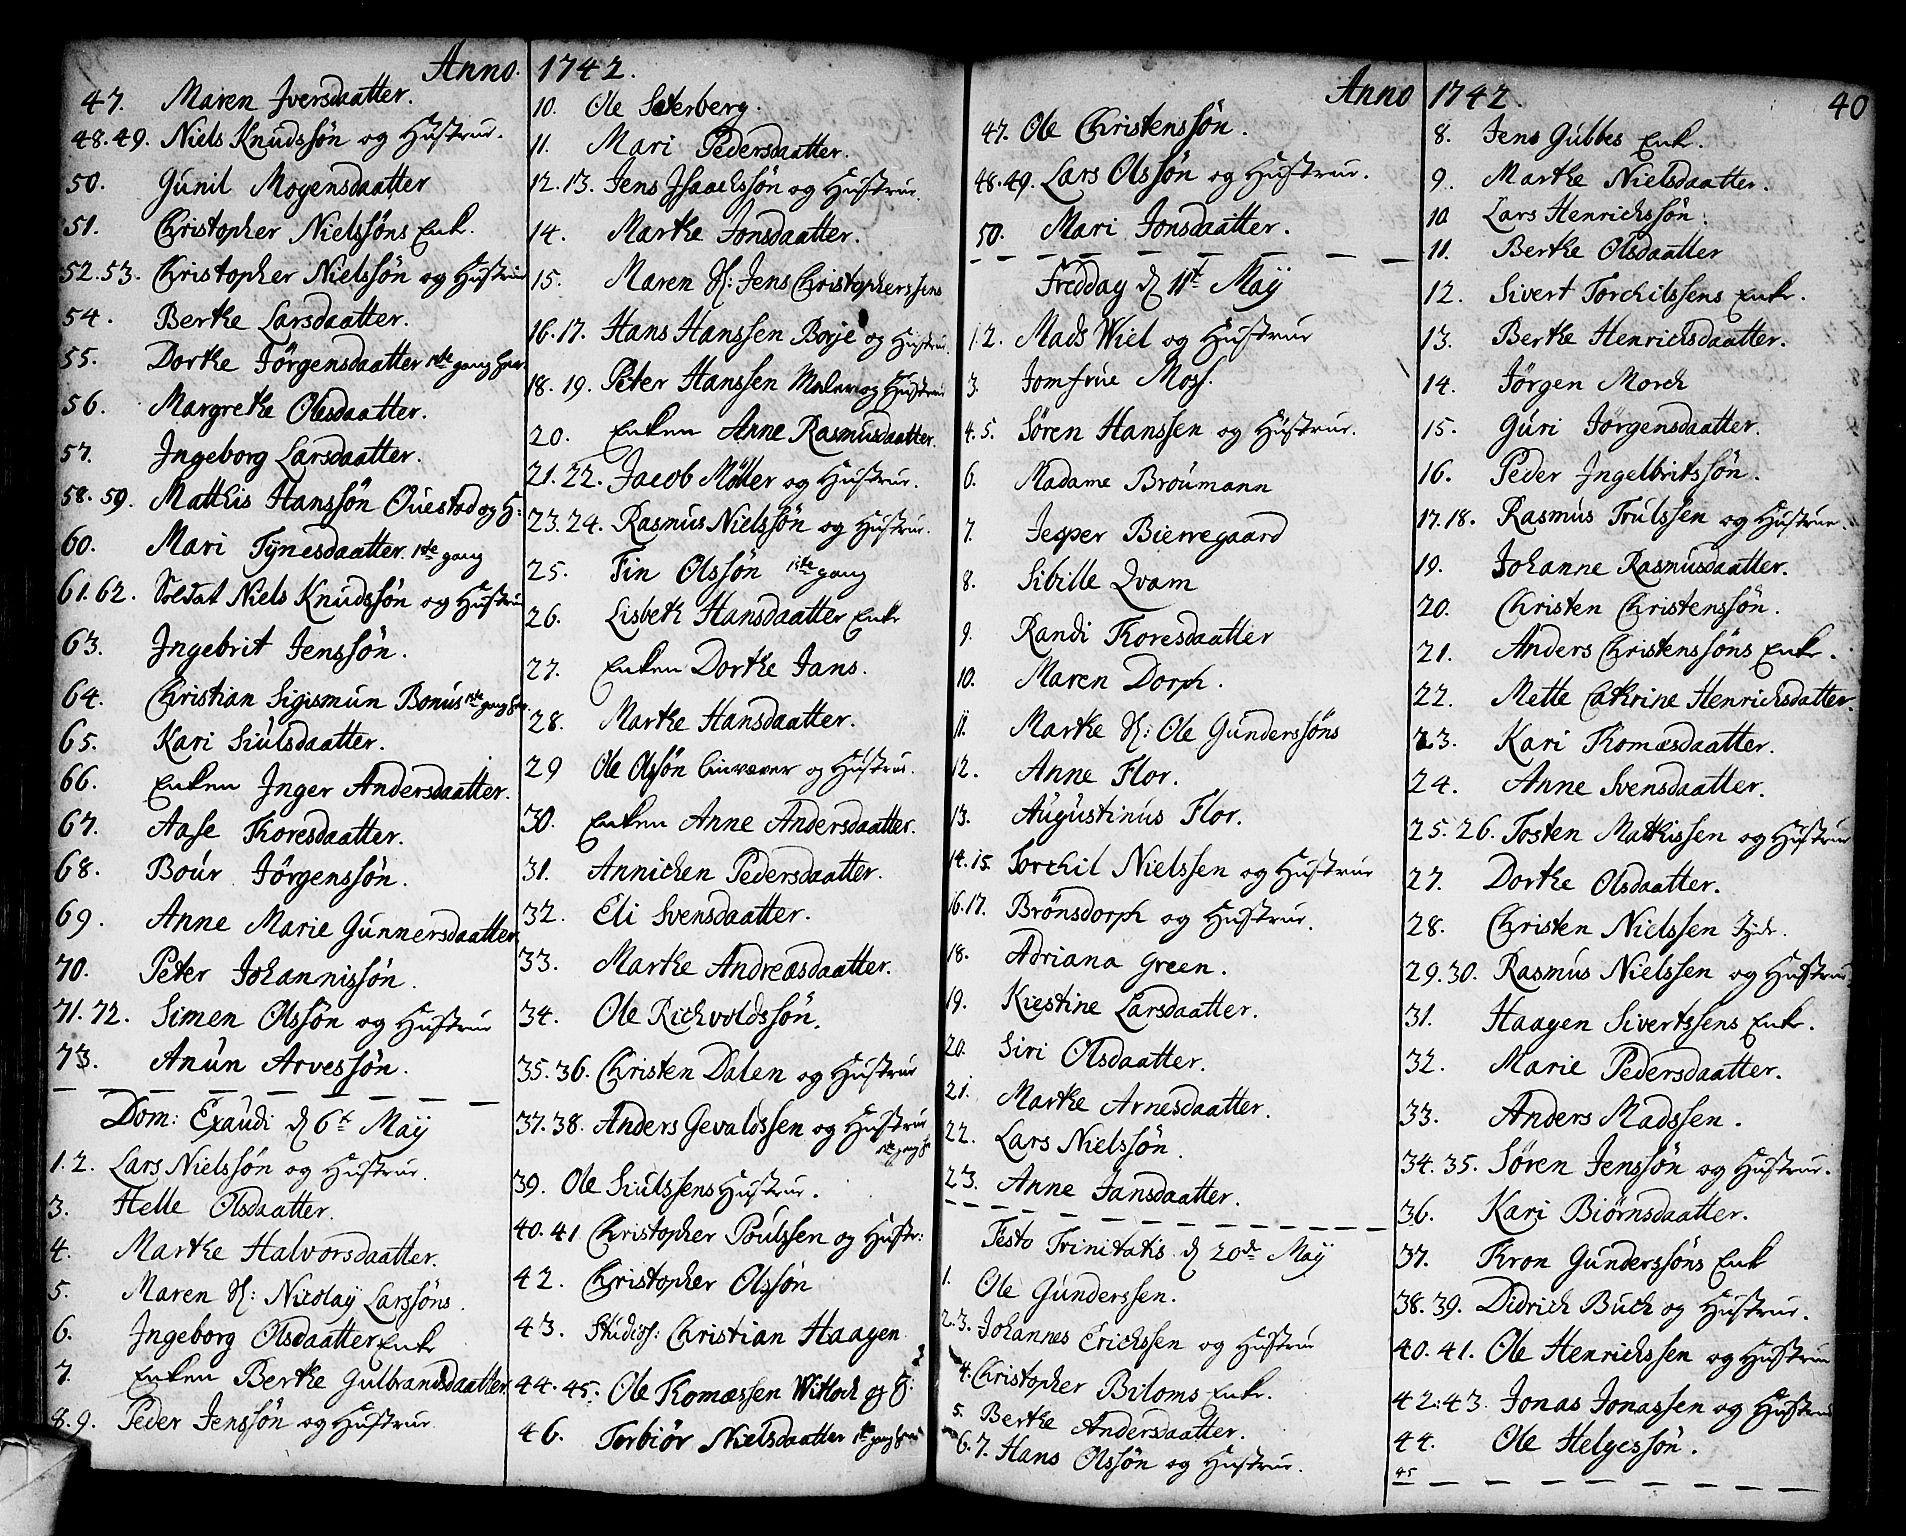 Anno 1742.
47. Maren Iversdaatter.
48.49. Niels Knudssön og Hustrue.
50. Gunil Mogensdaatter
51. Christopher Nielssöns Enk.
52.53. Christopher Nielssön og Hustrue
54. Berthe Larsdaatter.
55. Dorthe Jörgensdaatter 1ste gang her
56. Margrethe Olesdaatter.
57. Ingeborg Larsdaatter.
58.59. Matthis Hanssön Ouestad og H:
60. Mari Tynesdaatter. 1ste gang
61.62. Soldat Niels Knudssön og Hustrue
63. Ingebrit Jenssön.
64. Christian Sigismun Bonus 1ste gang her
65. Kari Siulsdaatter.
66. Enken Inger Andersdaatter.
67. Aase Thoresdaatter.
68. Bour Jörgenssön.
69. Anne Marie Gunnersdaatter
70. Peter Johannissön.
71.72. Simen Olssön og Hustrue
73. Anun Arvessön.
Dom: Exaudi d 6te Maÿ
1.2. Lars Nielssön og Hustrue.
3. Helle Olsdaatter.
4. Marthe Halvorsdaatter.
5. Maren H: Nicolaÿ Larssöns.
6. Ingeborg Olsdaatter Enk
7. Enken Berthe Gulbrandsdaatter
8.9. Peder Jenssön og Hustrue.
10. Ole Saterberg.
11. Mari Pedersdaatter.
12.13. Jens Isaachssön og Hustrue.
14. Marthe Jonsdaatter.
15. Maren H: Jens Christopherssens
16.17. Hans Hanssen Borje og Hustrue.
18.19. Peter Hanssen Maler og Hustrue
20. Enken Anne Rasmusdaatter.
21.22. Jacob Möller og Hustrue.
23.24. Rasmus Nielssön og Hustrue.
25. Fin Olssön 1ste gang
26. Lisbeth Hansdaatter Enke
27. Enken Dorthe Jans.
28. Marthe Hansdaatter.
29 Ole Olssön Linvæver og Hustrue.
30. Enken Anne Andersdaatter.
31. Annichen Pedersdaatter.
32. Eli Svensdaatter.
33. Marthe Andreasdaatter.
34. Ole Richvoldssön.
35.36. Christen Dalen og Hustrue
37.38. Anders Gevaldssen og Hustrue
1ste gang h
39. Ole Siulssens Hustrue.
40.41 Christopher Poulssen og Hustr:
42. Christopher Olssön
43. Studios: Christian Haagen
44.45. Ole Thomessen Witloch og H.
46. Torbiör Nielsdaatter 1ste gang her
Anno 1742. 40
47. Ole Christenssön.
48.49. Lars Olssön og Hustrue.
50. Mari Jonsdaatter.
Fredday d 11te Maÿ
1.2. Mads Wiel og Hustrue
3. Jomfrue Moss.
4.5. Sören Hanssen og Hustrue.
6. Madame Broumann
7. Jesper Bierregaard
8. Sibille Qvam
9. Randi Thoresdaatter
10. Maren Dorph.
11. Marthe H: Ole Gunderssöns
12. Anne Flor.
13. Augustinus Flor.
14.15. Torchil Nielssen og Hustrue
16.17. Brönsdorph og Hustrue.
18. Adriana Green.
19. Kiestine Larsdaatter.
20. Siri Olsdaatter.
21. Marthe Arnesdaatter.
22. Lars Nielssön.
23. Anne Jansdaatter.
Festo Trinitatis d 20de Maÿ
1. Ole Gunderssen.
2.3. Johannes Erichssen og Hustrue
4. Christopher Biloms Enke.
5. Berthe Andersdaatter.
6.7. Hans Olssön og Hustrue.
8. Jens Gubbes Enk.
9. Marthe Nielsdaatter.
10 Lars Henrichssön.
11. Berthe Olsdaatter
12. Sivert Torchilssens Enke.
13. Berthe Henrichsdaatter.
14. Jörgen Morch
15. Guri Jörgensdaatter.
16. Peder Ingelbritssön.
17.18. Rasmus Trulssen og Hustrue.
19. Johanne Rasmusdaatter.
20. Christen Christenssön.
21. Anders Christenssöns Enke.
22. Mette Cathrine Henrichsdatter.
23. Kari Thomæsdaatter.
24. Anne Svensdaatter.
25.26. Tosten Mathissen og Hustrue
27. Dorthe Olsdaatter.
28. Christen Nielssen Jyde.
29.30. Rasmus Nielssen og Hustrue.
31. Haagen Sivertssens Enke.
32. Marie Pedersdaatter.
33. Anders Madssen.
34.35. Sören Jenssön og Hustrue.
36. Kari Biörnsdaatter.
37. Thron Gunderssöns Enk
38.39. Didrich Buch og Hustrue.
40.41. Ole Henrichssen og Hustrue
42.43. Jonas Jonassen og Hustrue
44. Ole Helgessön.
45